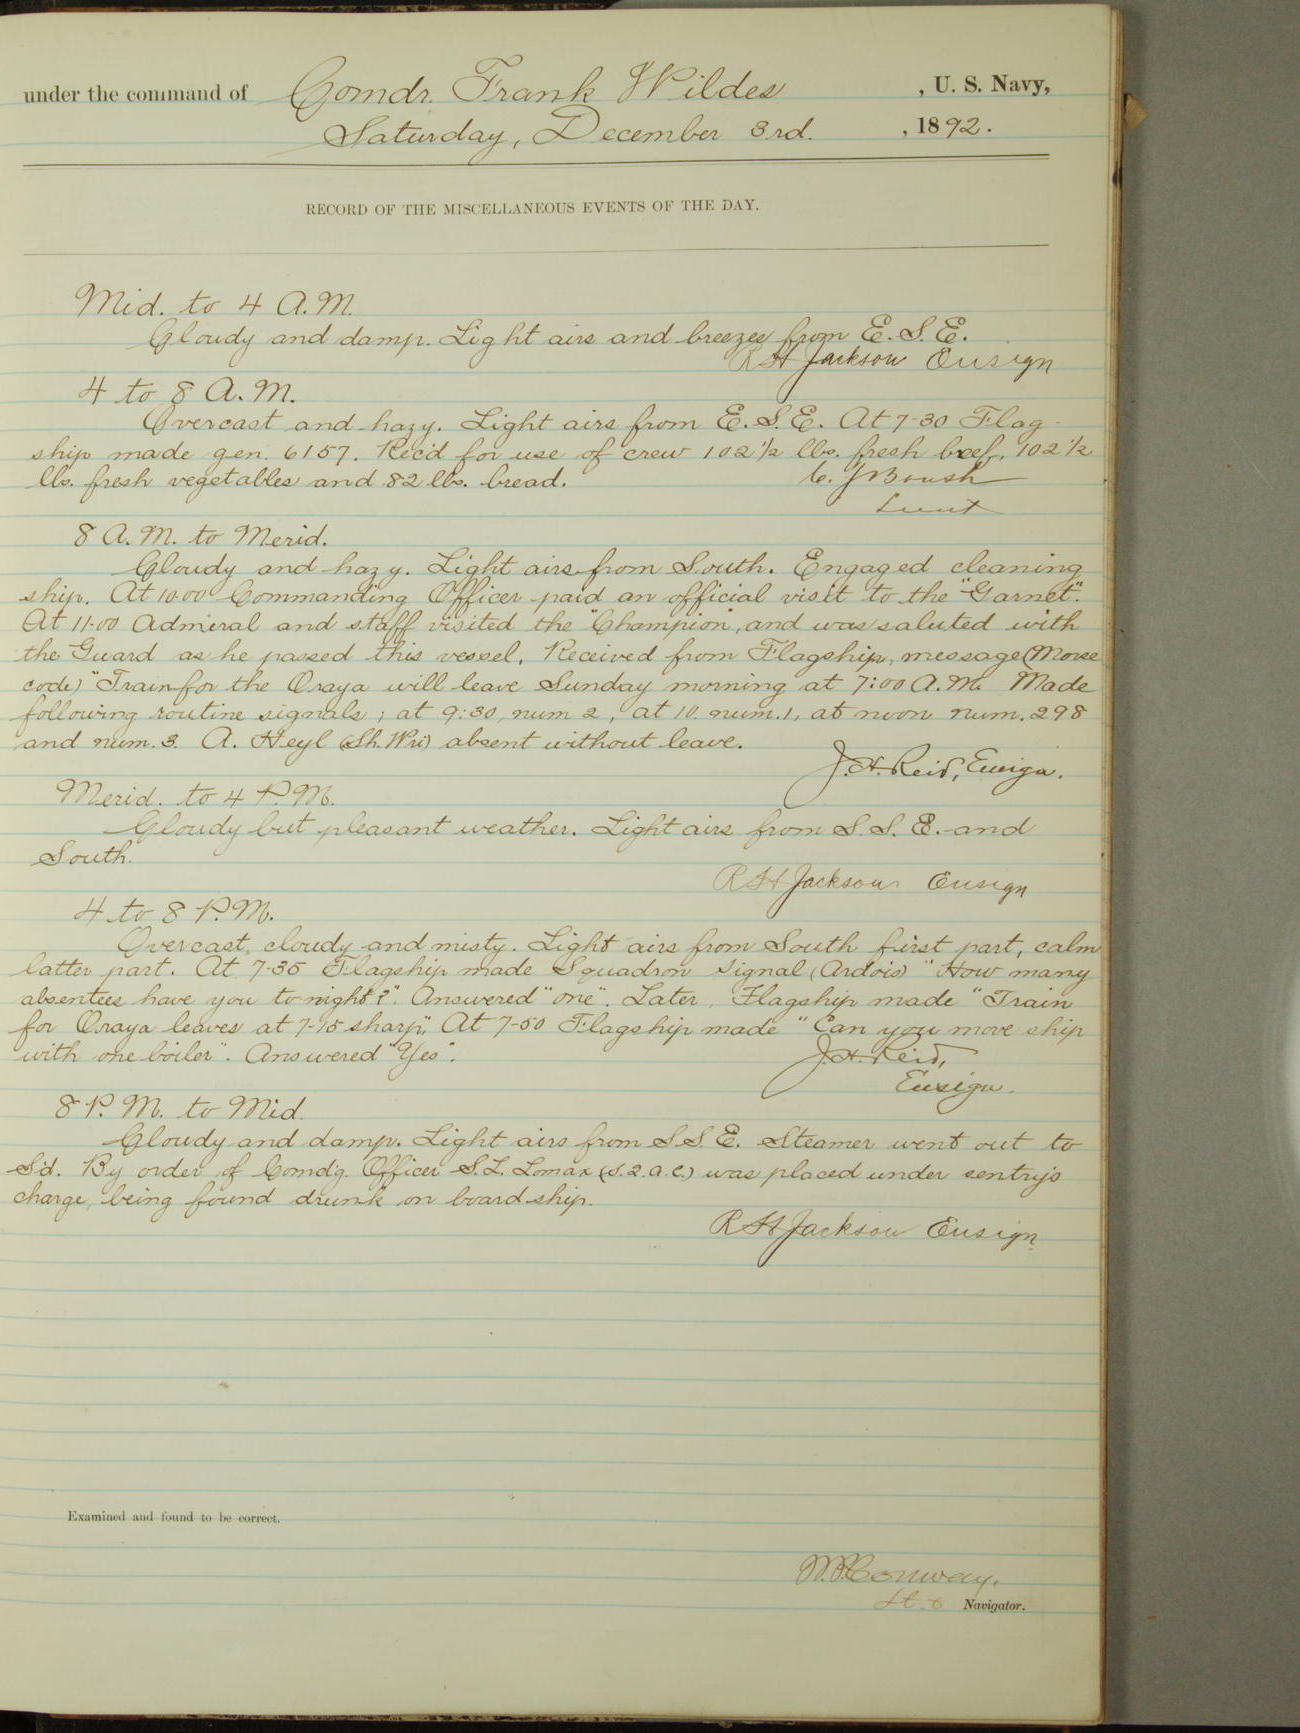 under the command of Comdr. Frank Wildes, U. S. Navy,
Saturday, December 3rd., 1892.
RECORD OF THE MISCELLANEOUS EVENTS OF THE DAY.
Mid. to 4 A.M.
Cloudy and damp. Light airs and breezes from E.S.E.
R H Jackson Ensign
4 to 8 A.M.
Overcast and hazy. Light airs from E.S.E. At 7-30 Flag
ship made gen. 6157. Rec'd for use of crew 102 1/2 lbs. fresh beef, 102 1/2
lbs. fresh vegetables and 82 lbs. bread.
C. J Boush
Lieut
8 A.M. to Merid.
Cloudy and hazy. Light airs from South. Engaged cleaning
ship. At 10.00 Commanding Officer paid an official visit to the "Garnet".
At 11-00 Admiral and staff visited the "Champion", and was saluted with
the Guard as he passed this vessel. Received from Flagship, message (Morse
code) "Train for the Oraya will leave Sunday morning at 7:00 A.M. Made
following routine signals; at 9:30, num 2, at 10. num. 1, at noon num. 298
and num. 3. A. Heyl (Sh. Wri) absent without leave.
J. H. Reid, Ensign.
Merid. to 4 P.M.
Cloudy but pleasant weather. Light airs from S.S.E. and
South.
R H Jackson Ensign
4 to 8 P.M.
Overcast, cloudy and misty. Light airs from South first part, calm
latter part. At 7-35 Flagship made Squadron signal (Ardois) "How many
absentees have you to night?". Answered "one". Later, Flagship made "Train
for Oraya leaves at 7-15 sharp". At 7-50 Flagship made "Can you move ship
with one boiler". Answered "Yes".
J. H. Reid,
Ensign.
8 P.M. to Mid.
Cloudy and damp. Light airs from S.S.E. Steamer went out to
S'd. By order of Comd'g. Officer S. L. Lomax (S.2.a.C.) was placed under sentry's
charge, being found drunk on board ship.
R H Jackson Ensign
Examined and found to be correct.
W. P. Conway,
Lt. & Navigator.